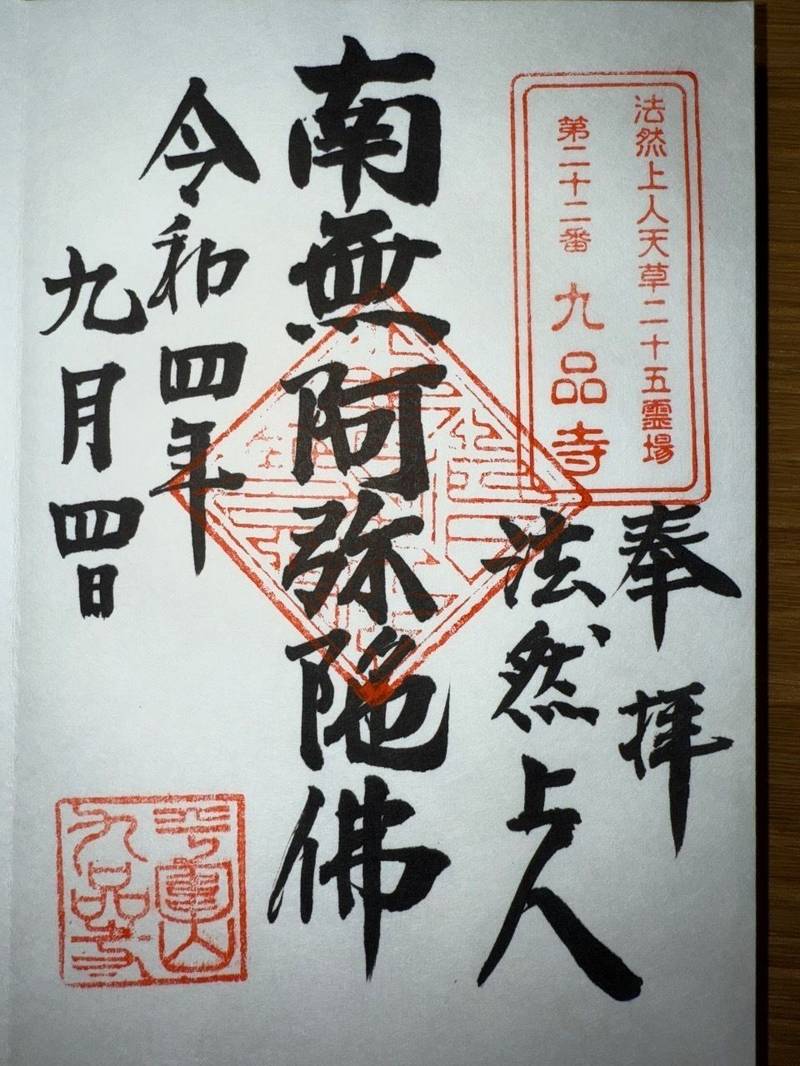 法然上人天草二十五霊場
第二十二番 九品寺
奉拝
法然上人
南無阿弥陀佛
令和四年
九月四日
九品寺